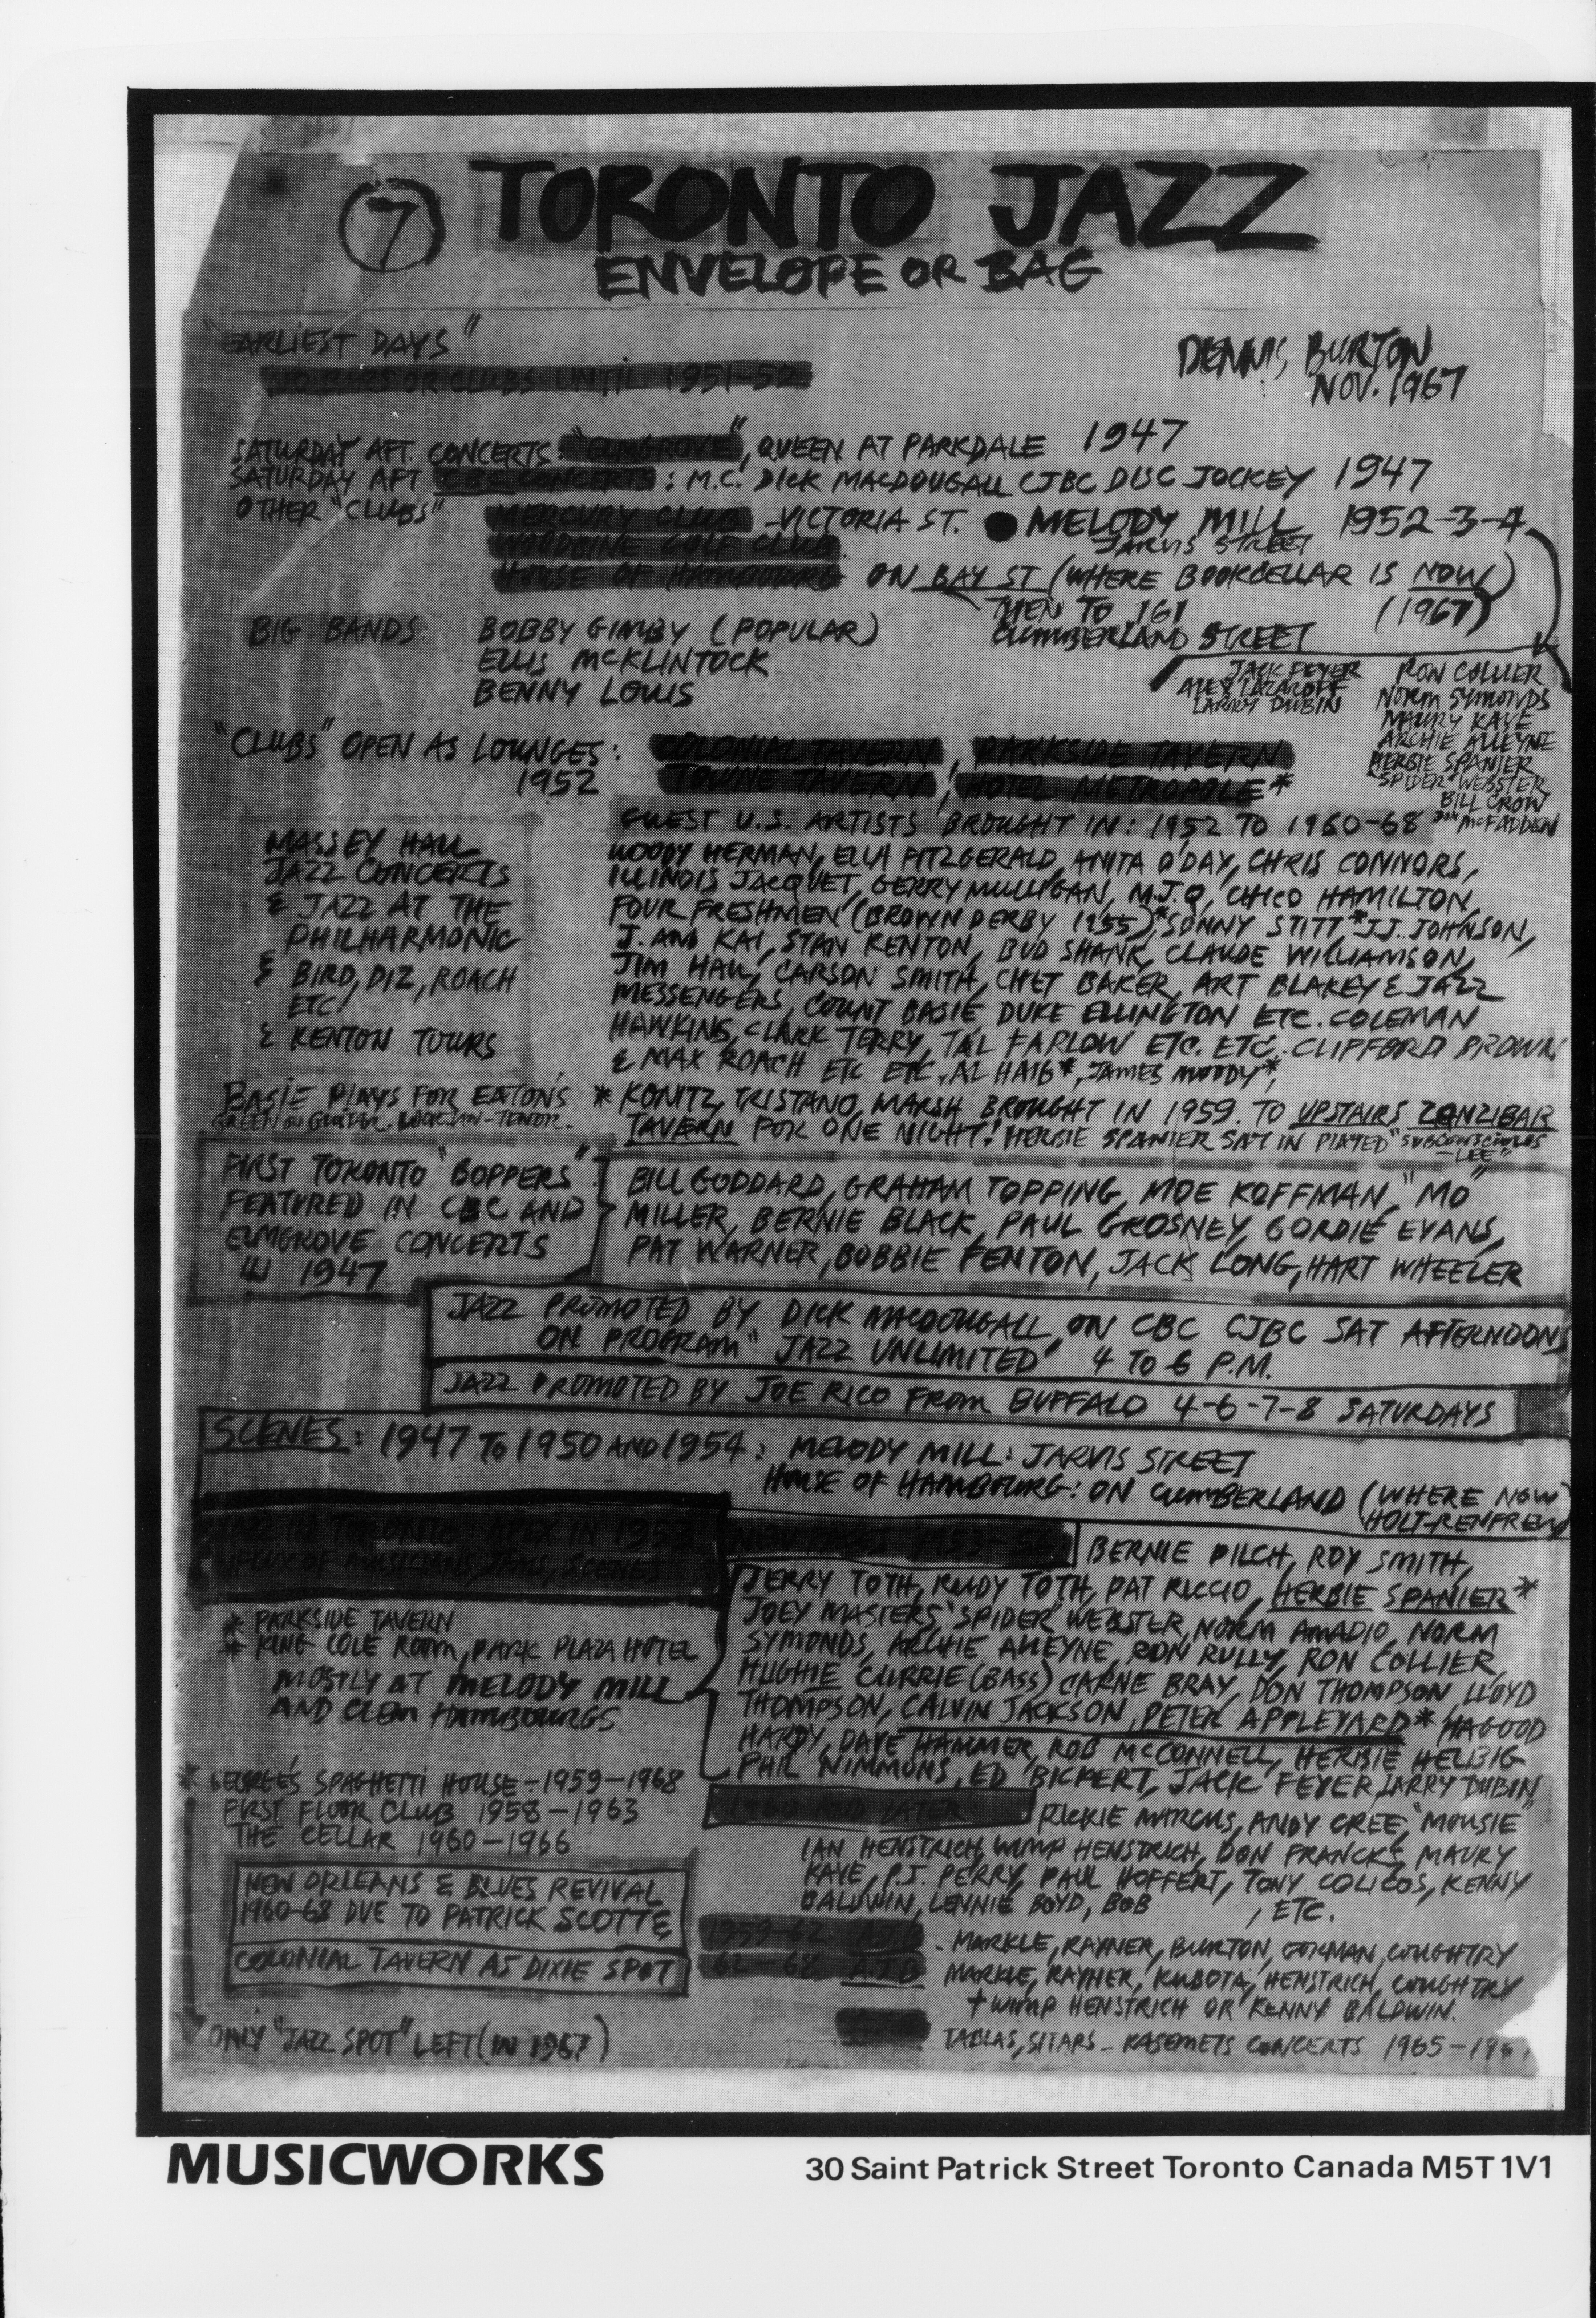 7 TORONTO JAZZ
ENVELOPE OR BAG
"EARLIEST DAYS"
NO BARS OR CLUBS UNTIL 1951-52
DENNIS BURTON
NOV. 1967
SATURDAY AFT. CONCERTS: "ELMGROVE", QUEEN AT PARKDALE 1947
SATURDAY AFT CBC CONCERTS: M.C. DICK MACDOUGALL CJBC DISC JOCKEY 1947
OTHER "CLUBS" MERCURY CLUB - VICTORIA ST. ● MELODY MILL 1952-3-4
JARVIS STREET
WOODBINE GOLF CLUB
HOUSE OF HAMBOURG ON BAY ST (WHERE BOOKCELLAR IS NOW)
(1967)
THEN TO 161
CUMBERLAND STREET
BIG BANDS: BOBBY GIMBY (POPULAR)
ELLIS McKLINTOCK
BENNY LOUIS
JACK FEYER
ALEX LAZAROFF
LARRY DUBIN
RON COLLIER
NORM SYMONDS
MAURY KAYE
ARCHIE ALLEYNE
HERBIE SPANIER
SPIDER WEBSTER
BILL CROW
DON McFADDEN
"CLUBS" OPEN AS LOUNGES: COLONIAL TAVERN, PARKSIDE TAVERN
1952 TOWNE TAVERN, HOTEL METROPOLE*
GUEST U.S. ARTISTS BROUGHT IN: 1952 TO 1960-68
MASSEY HALL
JAZZ CONCERTS
& JAZZ AT THE
PHILHARMONIC
& BIRD, DIZ, ROACH
ETC.
& KENTON TOURS
WOODY HERMAN, ELLA FITZGERALD, ANITA O'DAY, CHRIS CONNORS,
ILLINOIS JACQUET, GERRY MULLIGAN, M.J.Q, CHICO HAMILTON,
FOUR FRESHMEN (BROWN DERBY 1955)*, SONNY STITT,* J.J. JOHNSON,
J. AND KAI, STAN KENTON, BUD SHANK, CLAUDE WILLIAMSON,
JIM HALL, CARSON SMITH, CHET BAKER, ART BLAKEY & JAZZ
MESSENGERS, COUNT BASIE DUKE ELLINGTON ETC. COLEMAN
HAWKINS, CLARK TERRY, TAL FARLOW ETC. ETC. CLIFFORD BROWN
& MAX ROACH ETC ETC, AL HAIG*, JAMES MOODY*,
BASIE PLAYS FOR EATON'S
GREEN ON GUITAR. LOCKJAW-TENOR.
* KONITZ, TRISTANO, MARSH BROUGHT IN 1959. TO UPSTAIRS ZANZIBAR
TAVERN FOR ONE NIGHT! HERBIE SPANIER SAT IN PLAYED "SUBCONSCIOUS
-LEE"
FIRST TORONTO "BOPPERS"
FEATURED IN CBC AND
ELMGROVE CONCERTS
IN 1947
BILL GODDARD, GRAHAM TOPPING, MOE KOFFMAN, "MO"
MILLER, BERNIE BLACK, PAUL GROSNEY, GORDIE EVANS,
PAT WARNER, BOBBIE FENTON, JACK LONG, HART WHEELER
JAZZ PROMOTED BY DICK MACDOUGALL, ON CBC CJBC SAT AFTERNOONS
ON PROGRAM "JAZZ UNLIMITED" 4 TO 6 P.M.
JAZZ PROMOTED BY JOE RICO FROM BUFFALO 4-6-7-8 SATURDAYS
SCENES: 1947 TO 1950 AND 1954: MELODY MILL: JARVIS STREET
HOUSE OF HAMBOURG: ON CUMBERLAND (WHERE NOW
HOLT-RENFREW)
JAZZ IN TORONTO: APEX IN 1953
INFLUX OF MUSICIANS, JAMS, SCENES
* PARKSIDE TAVERN
* KING COLE ROOM, PARK PLAZA HOTEL
MOSTLY AT MELODY MILL
AND CLEM HAMBOURGS
NEW FACES 1953-56 BERNIE PILCH, ROY SMITH,
JERRY TOTH, RUDY TOTH, PAT RICCIO, HERBIE SPANIER*
JOEY MASTERS, "SPIDER" WEBSTER, NORM AMADIO, NORM
SYMONDS, ARCHIE ALLEYNE, RON RULLY, RON COLLIER,
HUGHIE CURRIE (BASS) CARNE BRAY, DON THOMPSON, LLOYD
THOMPSON, CALVIN JACKSON, PETER APPLEYARD* HAGOOD
HARDY, DAVE HAMMER, ROB McCONNELL, HERBIE HELBIG
PHIL NIMMONS, ED BICKERT, JACK FEYER, LARRY DUBIN
* GEORGE'S SPAGHETTI HOUSE - 1959-1968
FIRST FLOOR CLUB 1958-1963
THE CELLAR 1960-1966
1960 AND LATER: RICKIE MARCUS, ANDY CREE, "MOUSIE"
IAN HENSTRICH, WIMP HENSTRICH, DON FRANCKS, MAURY
KAYE, P.J. PERRY, PAUL HOFFERT, TONY COLICOS, KENNY
BALDWIN, LENNIE BOYD, BOB , ETC.
NEW ORLEANS & BLUES REVIVAL
1960-68 DUE TO PATRICK SCOTT &
COLONIAL TAVERN AS DIXIE SPOT
1959-62 A.J.B. - MARKLE, RAYNER, BURTON, GORMAN, COUGHTRY
62-68 A.J.B. MARKLE, RAYNER, KUBOTA, HENSTRICH, COUGHTRY
+ WIMP HENSTRICH OR KENNY BALDWIN.
ONLY "JAZZ SPOT" LEFT (IN 1967)
TABLAS, SITARS - KASEMETS CONCERTS 1965-
MUSICWORKS
30 Saint Patrick Street Toronto Canada M5T 1V1